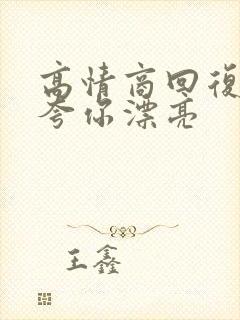 高情商回復
夸你漂亮
王鑫